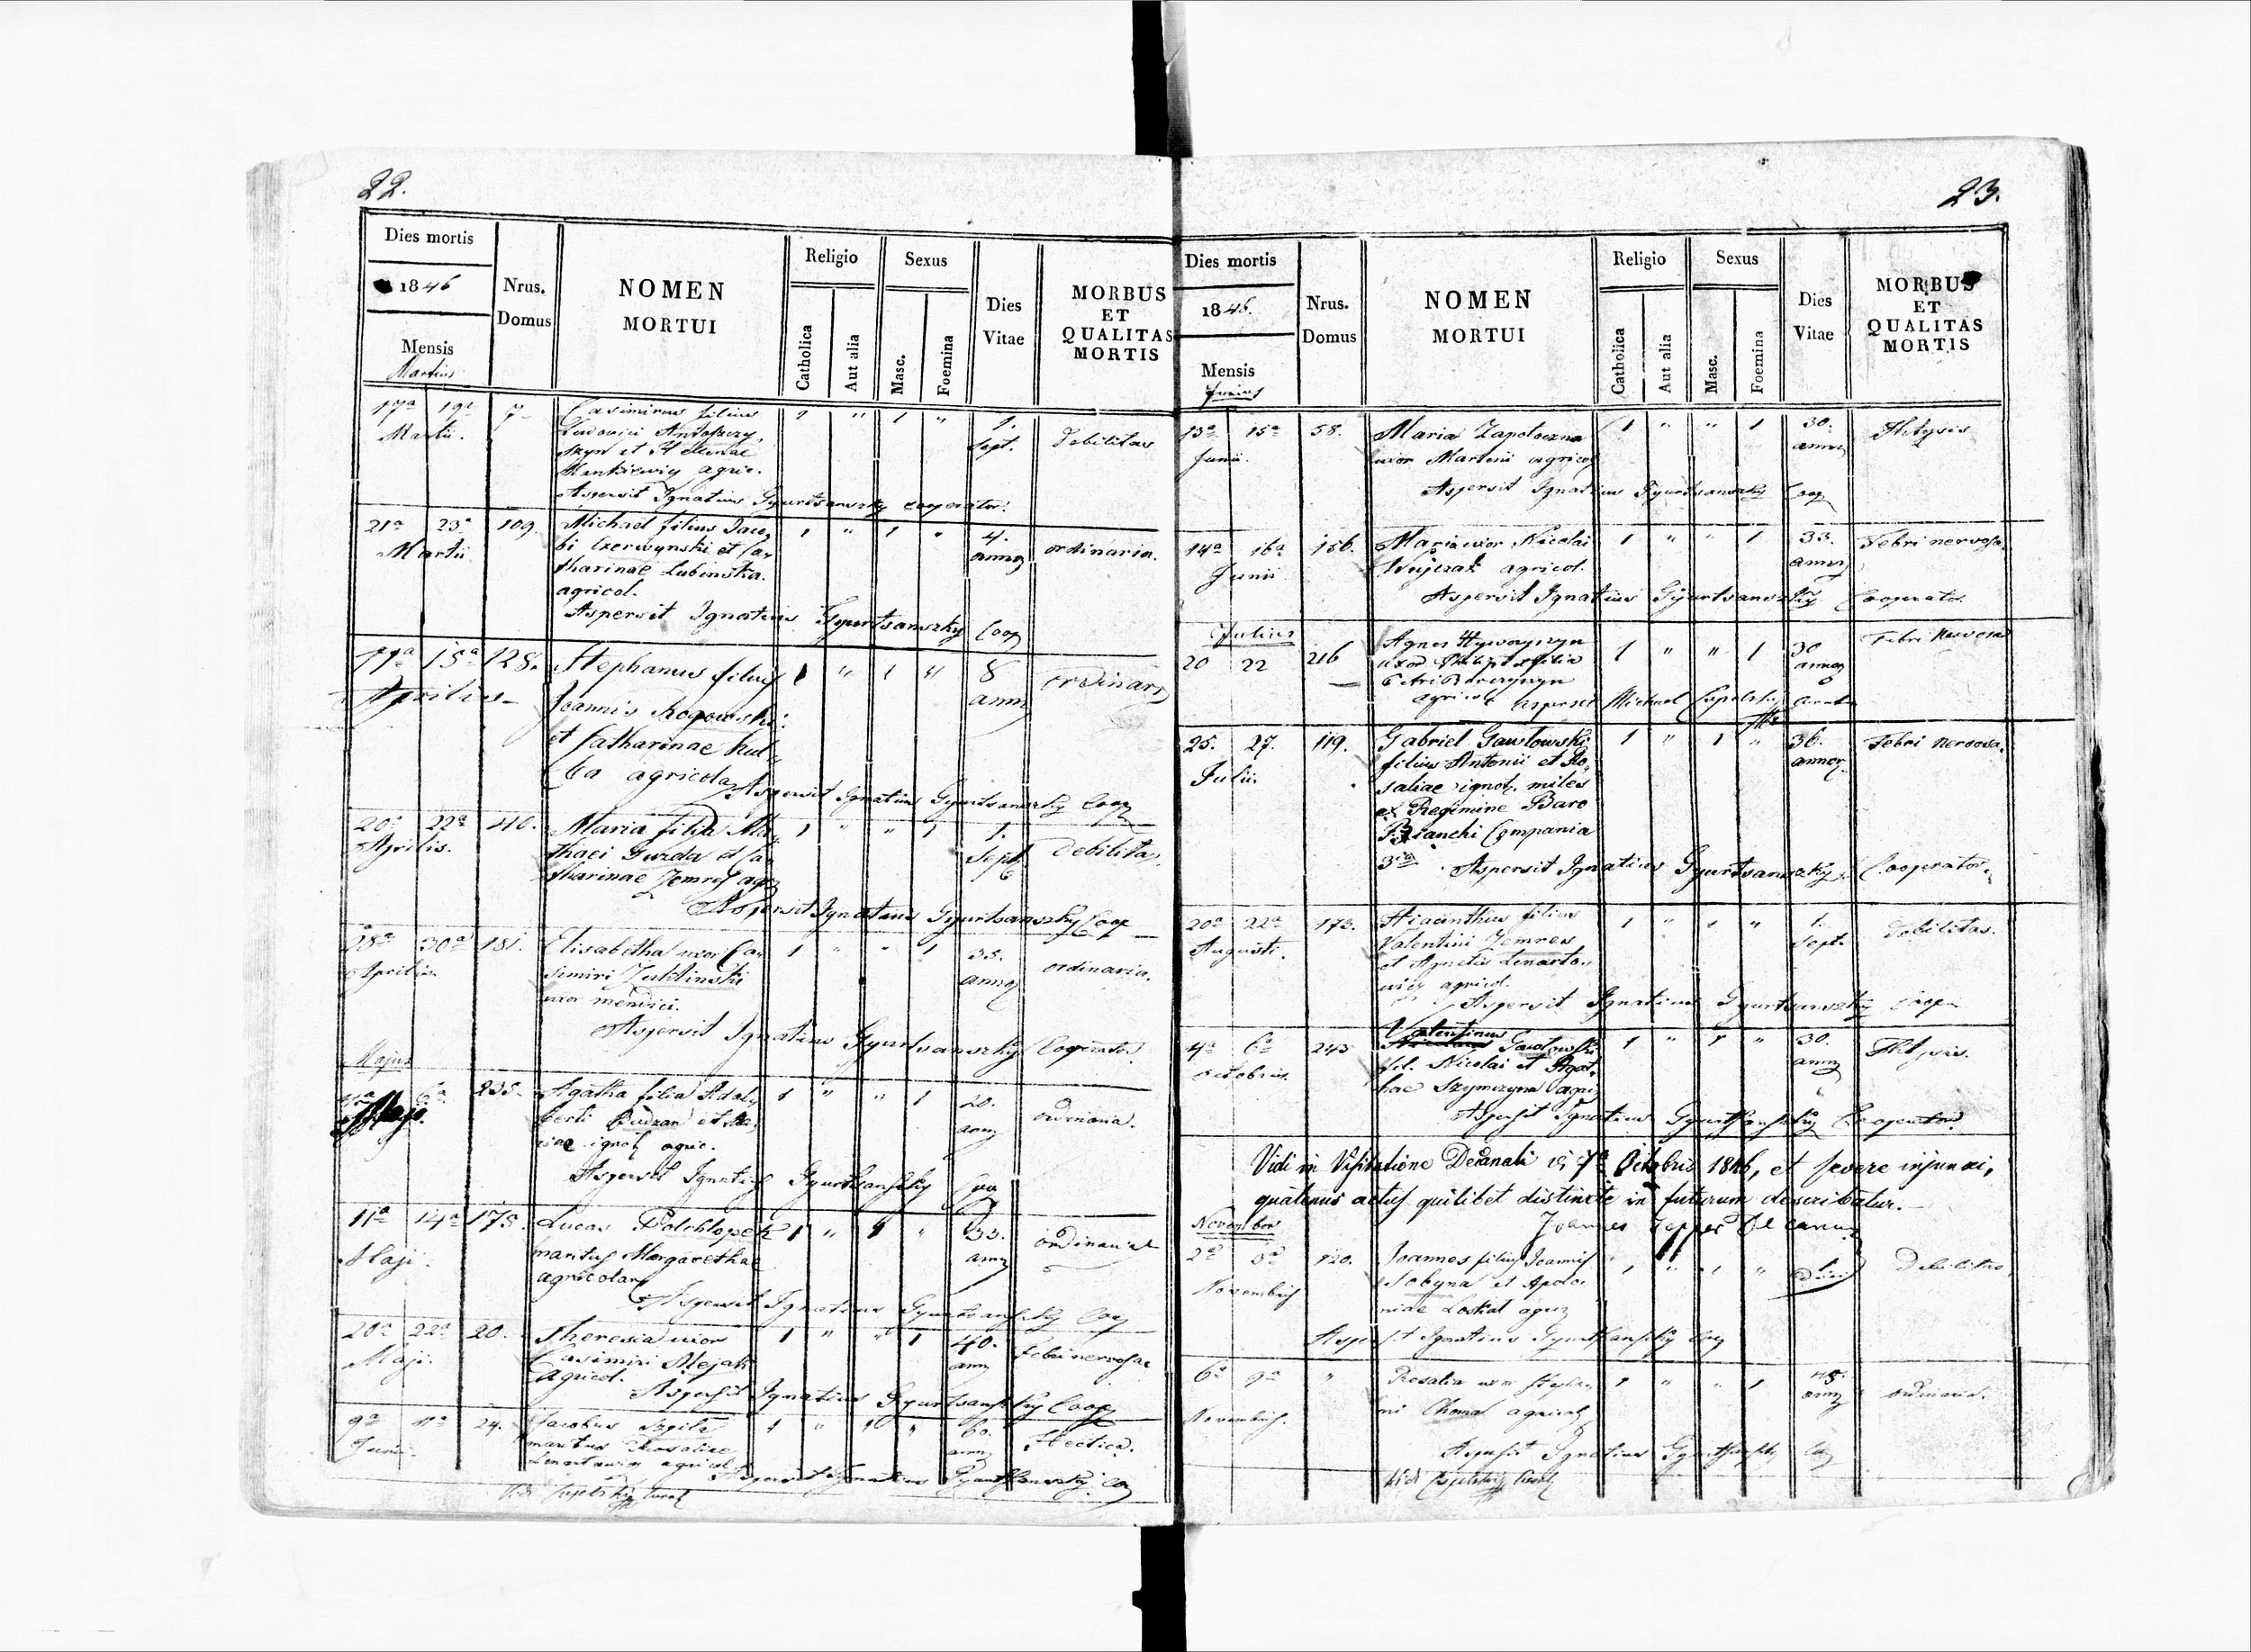 22.
Dies mortis
1846
Mensis
Martius
Nrus.
Domus
NOMEN
MORTUI
Religio
Catholica
Aut alia
Sexus
Masc.
Foemina
Dies
Vitae
MORBUS
ET
QUALITAS
MORTIS
17a 19a 7 Casimirus filius 1 " 1 " 1.
Martii. Ludovici sept. Debilitas
szyn et Helenae
agric.
Aspersit Ignatius Gyurtsanszky cooperator.
21a 23a 109. Michael filius Jaco 1 " 1 " 4.
Martii bi Czerwynski et Ca annor ordinaria.
tharinae Lubinska.
agricol.
Aspersit Ignatius Gyurtsanszky Coop
15a 128. Stephanus filius 1 " 1 " 8
Aprilis Joannis Rogowski annor ordinaria
et Catharinae
agricola
Aspersit Ignatius Gyurtsanszky Coop
20a 22a 40. Maria filia Ma 1 " " 1 1.
Aprilis. thaei Guzda et Ca Sept. Debilitas.
tharinae Jemres agr
Aspersit Ignatius Gyurtsanszky Coop
28a 30a 181. Elisabetha uxor Ca 1 " " 1 35.
Aprilis simiri annor ordinaria.
uxor mendici.
Aspersit Ignatius Gyurtsanszky Cooperator
Majus
6a 235. Agatha filia Adal 1 " " 1 20.
Maji. berti Budzan et Ma ann ordinaria.
riae ignot agric.
Aspersit Ignatius Gyurtsanszky Coo
11a 14a 175. Lucas Polchlopek 1 " 1 " 33.
Maji. maritus Margarethae ann ordinaria
agricolar
Aspersit Ignatius Gyurtsanszky Coop
20a 22a 20. Theresia uxor 1 " " 1 40.
Maji. Casimiri Mejak ann Febri nervosae
agricol.
Aspersit Ignatius Gyurtsanszky Coop
9a 11a 24. Jacobus 1 " 1 " 60.
Junii maritus Rosaliae ann Hectica.
agricol
Aspersit Ignatius Gyurtsanszky Coo
Vidi
23.
Dies mortis
1846.
Mensis
Junius
Nrus.
Domus
NOMEN
MORTUI
Religio
Catholica
Aut alia
Sexus
Masc.
Foemina
Dies
Vitae
MORBUS
ET
QUALITAS
MORTIS
13a 15a 58. Maria Zapotoczna 1 " " 1 30. Phtysis
Junii. uxor Martini agricol annor
Aspersit Ignatius Gyurtsanszky Coop
14a 16a 156. Maria uxor Nicolai 1 " " 1 33. Febri nervosa
Junii Wujczak agricol. annor
Aspersit Ignatius Gyurtsanszky Cooperator.
Julius
20 22 216 Agnes 1 " " 1 30 Febri nervosa
uxor Philippi filia annor
Petri
agricol Aspersit Michael
25. 27. 119. Gabriel Gawlowski 1 " 1 " 36. Febri nervosa.
Julii. filius Antonii et Ro annor.
saliae ignot. miles
ex Regimine Baro
Bianchi Compania
3cia Aspersit Ignatius Gyurtsanszky Cooperator.
20a 22a 173. Hiacinthus filius 1 " 1 " 1. Debilitas.
Augusti. Valentini Jemres Sept.
et Agnetis Lenarto
wicz agricol.
Aspersit Ignatius Gyurtsanszky Coop
4a 6a 243 Valentinus Gawlowski 1 " 1 " 30. Phtysis.
Octobris. fil. Nicolai et Agat ann
hae Szymczyna agri
Aspersit Ignatius Gyurtsanszky Cooperator.
Vidi in Visitatione Decanali 7a Octobris 1846, et severe injunxi,
quatenus actus quilibet distincte in futurum describatur.
Joannes Decanus
November
2a 3a 120. Joannes filius Joannis 1 " 1 " 1 Debilitas.
Novembris Sobyna et Apolo diei
niae Loskot agric
Aspersit Ignatius Gyurtsanszky Coop
6a 9a " Rosalia uxor Stepha 1 " " 1 45. ordinaria.
Novembris. ni Choma agricol ann
Aspersit Ignatius Gyurtsanszky Coo
Vidi